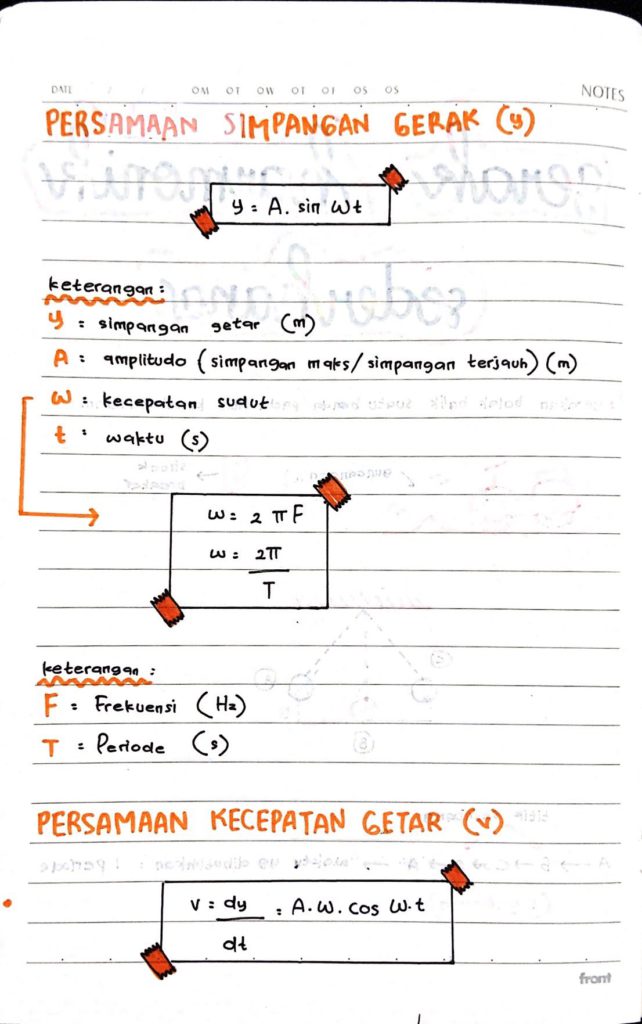 DATE / / OM OT OW OT OF OS OS NOTES
PERSAMAAN SIMPANGAN GERAK (y)
y = A. sin ωt
keterangan :
y = simpangan getar (m)
A = amplitudo (simpangan maks/simpangan terjauh) (m)
ω = kecepatan sudut
t = waktu (s)
ω = 2 π F
ω = 2π
T
keterangan :
F = Frekuensi (Hz)
T = Periode (s)
PERSAMAAN KECEPATAN GETAR (v)
v = dy = A.ω. cos ω.t
dt
front